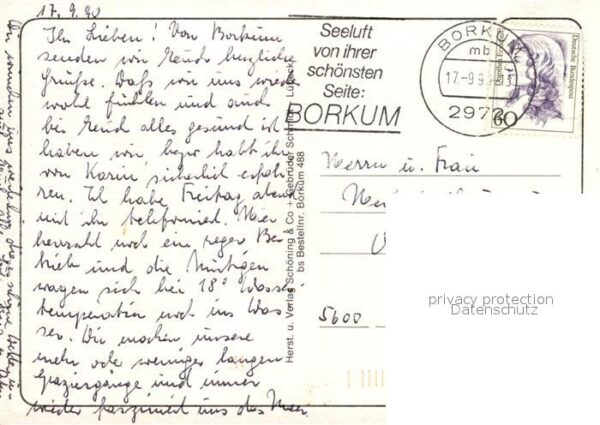 17.9.90
Ihr Lieben! Von Borkum
senden wir Euch herzliche
Grüße. Daß wir uns wieder
wohl fühlen und auch
bei Euch alles gesund ist
haben wir, bzw habt ihr
von Karin sicherlich erfah-
ren. Ich habe Freitag abend
mit ihr telefoniert. Hier
herrscht noch ein reger Be-
trieb und die Mutigen
wagen sich bei 18° Wasser-
temperatur noch ins Was-
ser. Wir machen unsere
mehr oder weniger langen
Spaziergänge und immer
wieder fasziniert uns das Meer.
Herst. u. Verlag Schöning & Co + Gebrüder Schmidt, Lübeck
bs Bestellnr. Borkum 488
Seeluft
von ihrer
schönsten
Seite:
BORKUM
BORKUM
mb
17.-9.9
2972
Deutsche Bundespost
60
Herrn u. Frau
5600
privacy protection
Datenschutz